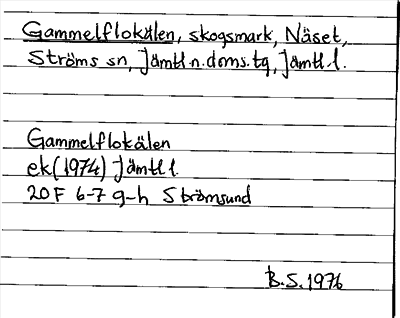 Gammelflokälen, skogsmark, Näset,
Ströms sn, Jämtl.n.doms.tg, Jämtl.l.
Gammelflokälen
ek(1974) Jämtl l.
20F 6-7 g-h Strömsund
B.S. 1976